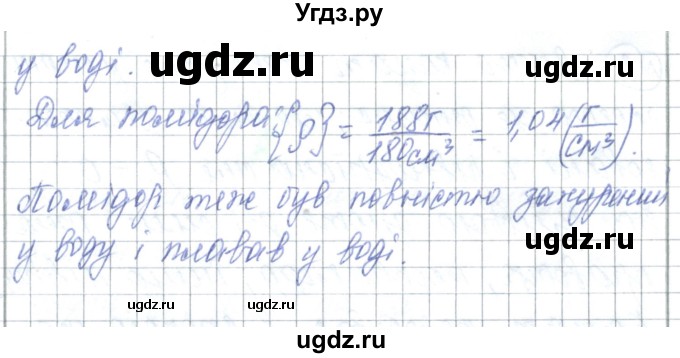 Угдз.ру
у воді.
ugdz.ru ugdz.ru
Для помідора: {ρ} = 188г/180см³ = 1,04 (г/см³).
Помідор теж був повністю занурений
у воду і плавав у воді.
ugdz.ru ugdz.ru
ugdz.ru ugdz.ru
ugdz.ru